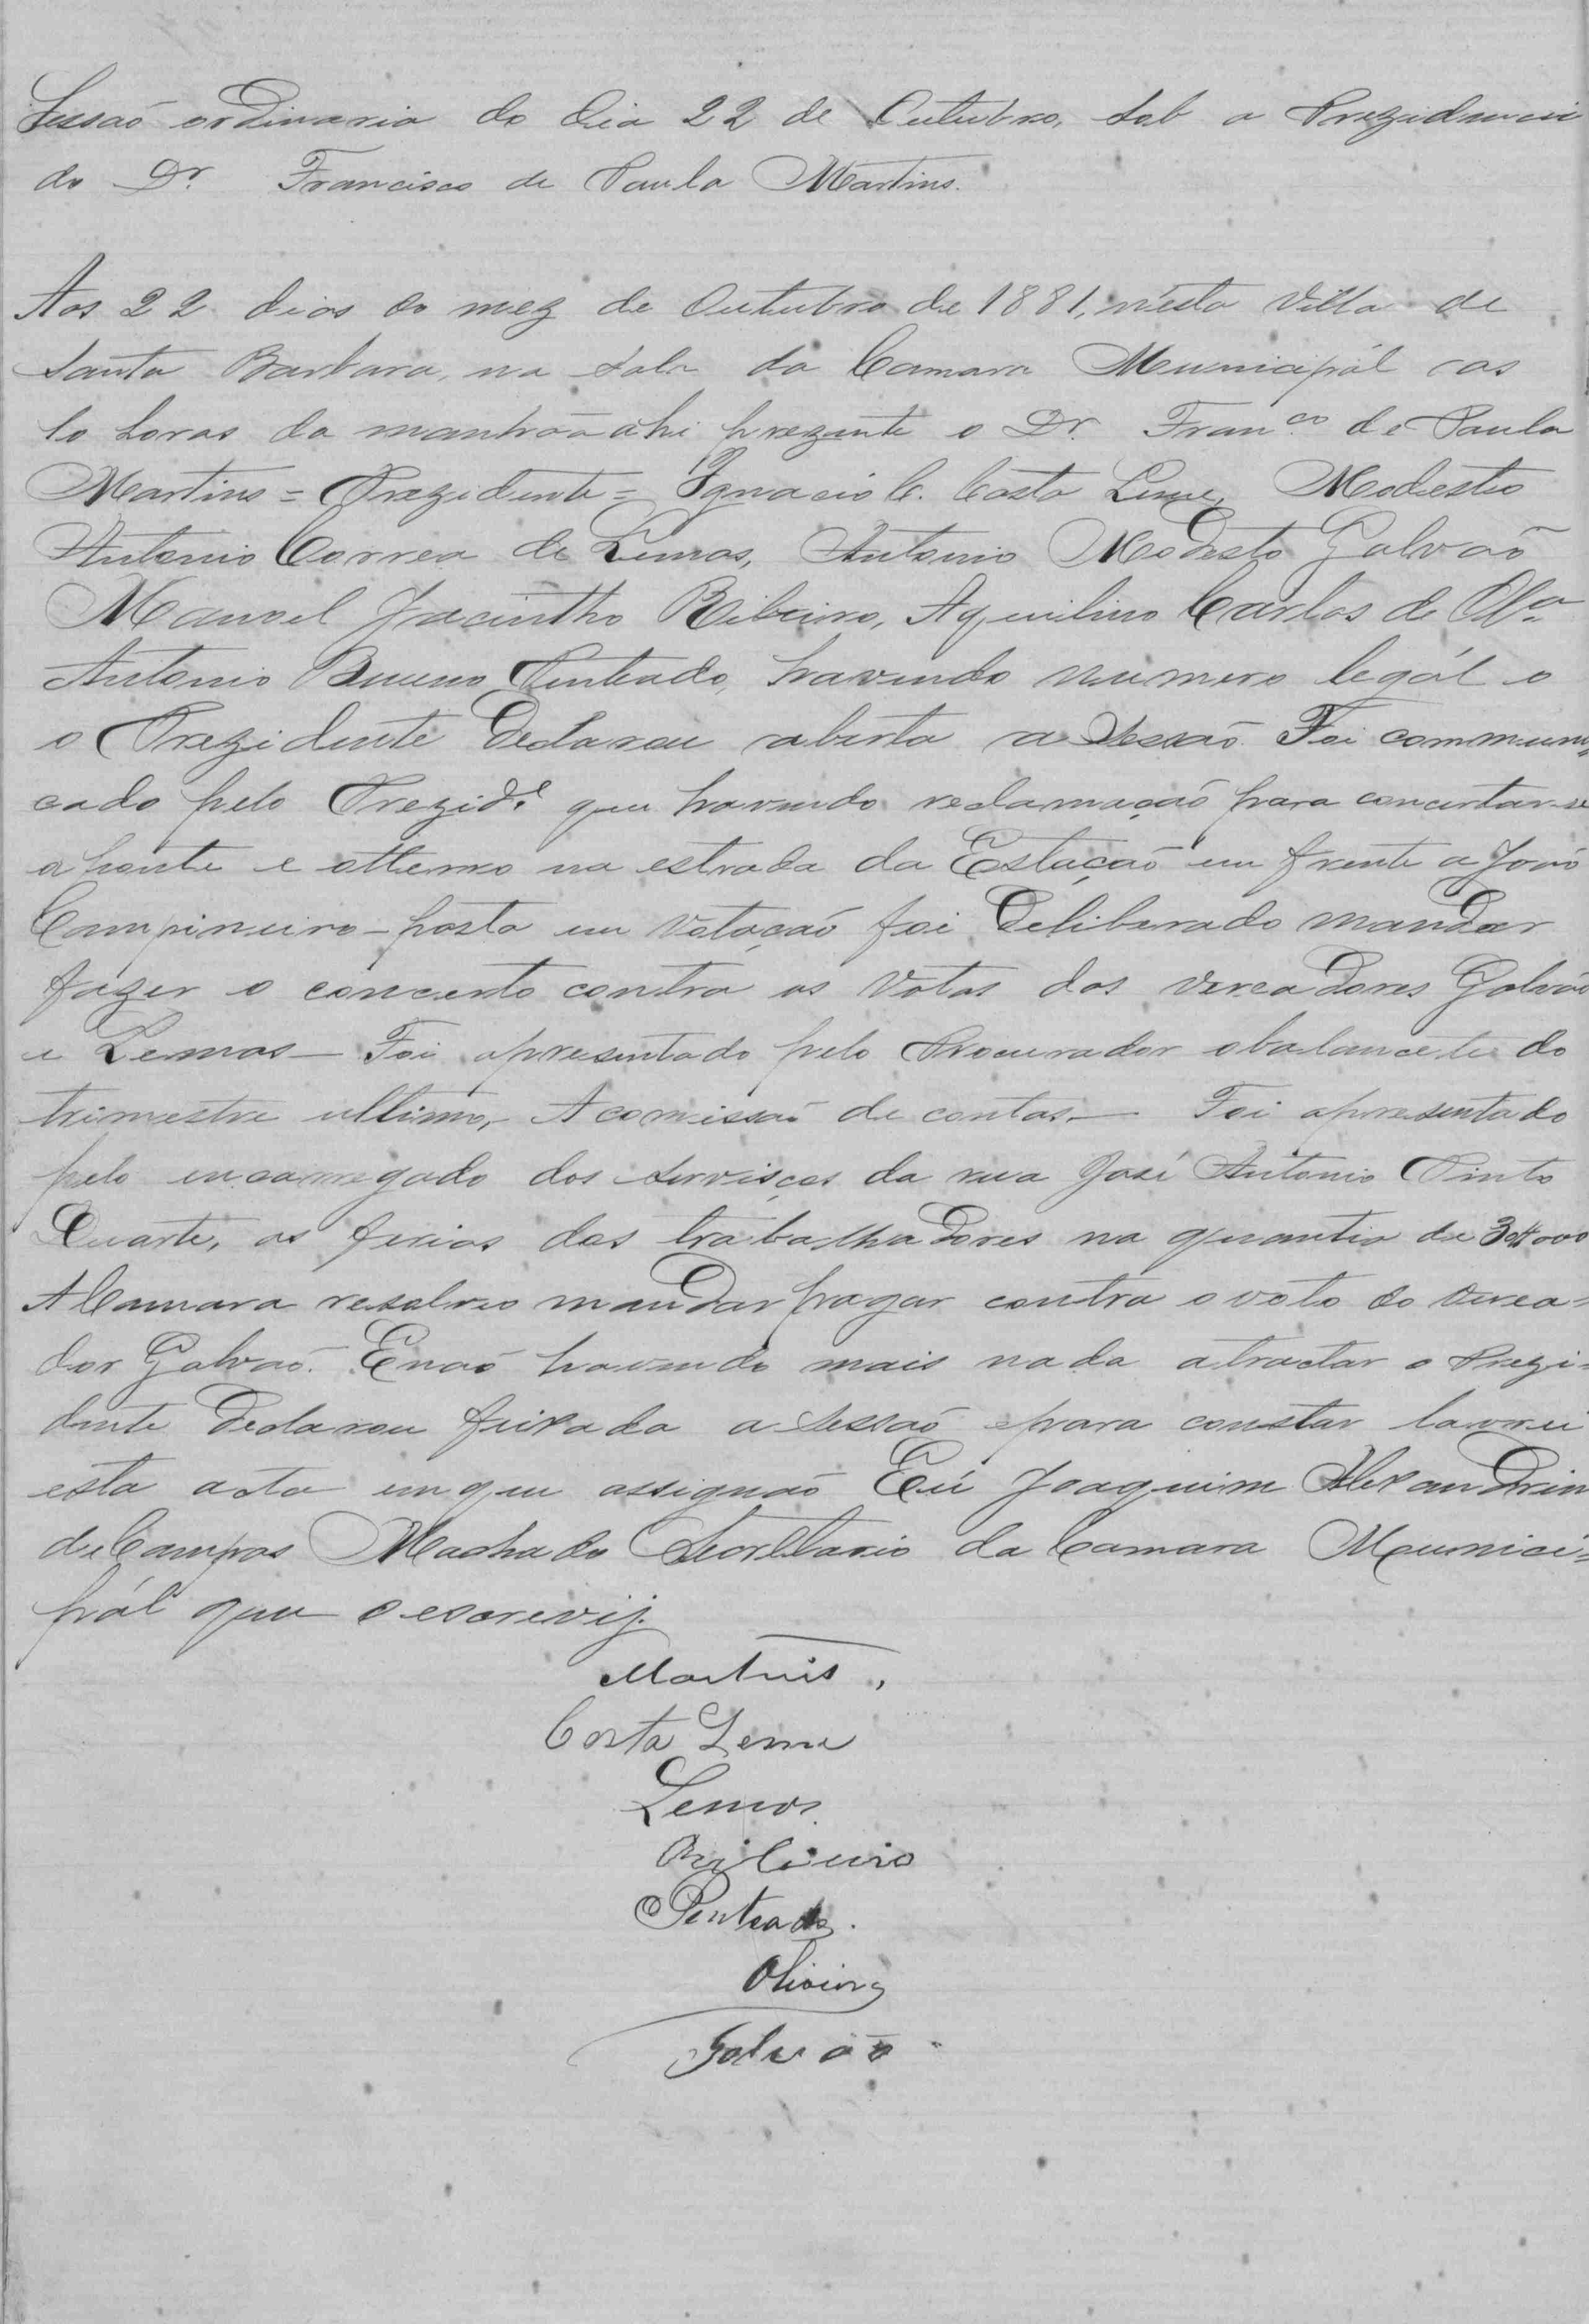 Sessaõ ordinaria do dia 22 de Outubro, sob a Prezidencia
do Dr. Francisco de Paula Martins.
Aos 22 dias do mez de Outubro de 1881, nésta Villa de
Santa Barbara, na sala da Camara Municipál as
10 horas da manhãa ahi prezente o Dr. Fran.co de Paula
Martins = Prezidente = Ignacio C. Costa Leme, Modesto
Antonio Correa de Lemos, Antonio Modesto Galvaõ
Manoel Jacintho Ribeiro, Aquilino Carlos de Olv.a
Antonio Bueno Penteado, havendo numero legál o
o Prezidente declarou aberta a Sessaõ. Foi communi=
cado pelo Prezid.e que havendo reclamaçaõ para concertar-se
a ponte e atterro na estrada da Estaçaõ em frente a Joaõ
Campineiro - posta em votaçaõ foi deliberado mandar
fazer o concerto contra os votos dos vereadores Galvaõ
e Lemos — Foi apresentado pelo Procurador o balancete do
trimestre ultimo, A comissaõ de contas. — Foi apresentado
pelo encarregado dos servisços da rua José Antonio Pinto
Duarte, as ferias dos trabalhadores na quantia de
A Camara resolveo mandar pagar contra o voto do verea=
dor Galvaõ. E naõ havendo mais nada a tractar o Prezi=
dente declarou feixada a sessaõ e para constar lavrei
esta acta em que assignaõ Eu Joaquim Alexandrino
de Campos Machado Secretario da Camara Munici=
pál que o escrevij.
Martins,
Costa Leme
Lemos
Ribeiro
Penteado.
Oliveira
Galvaõ